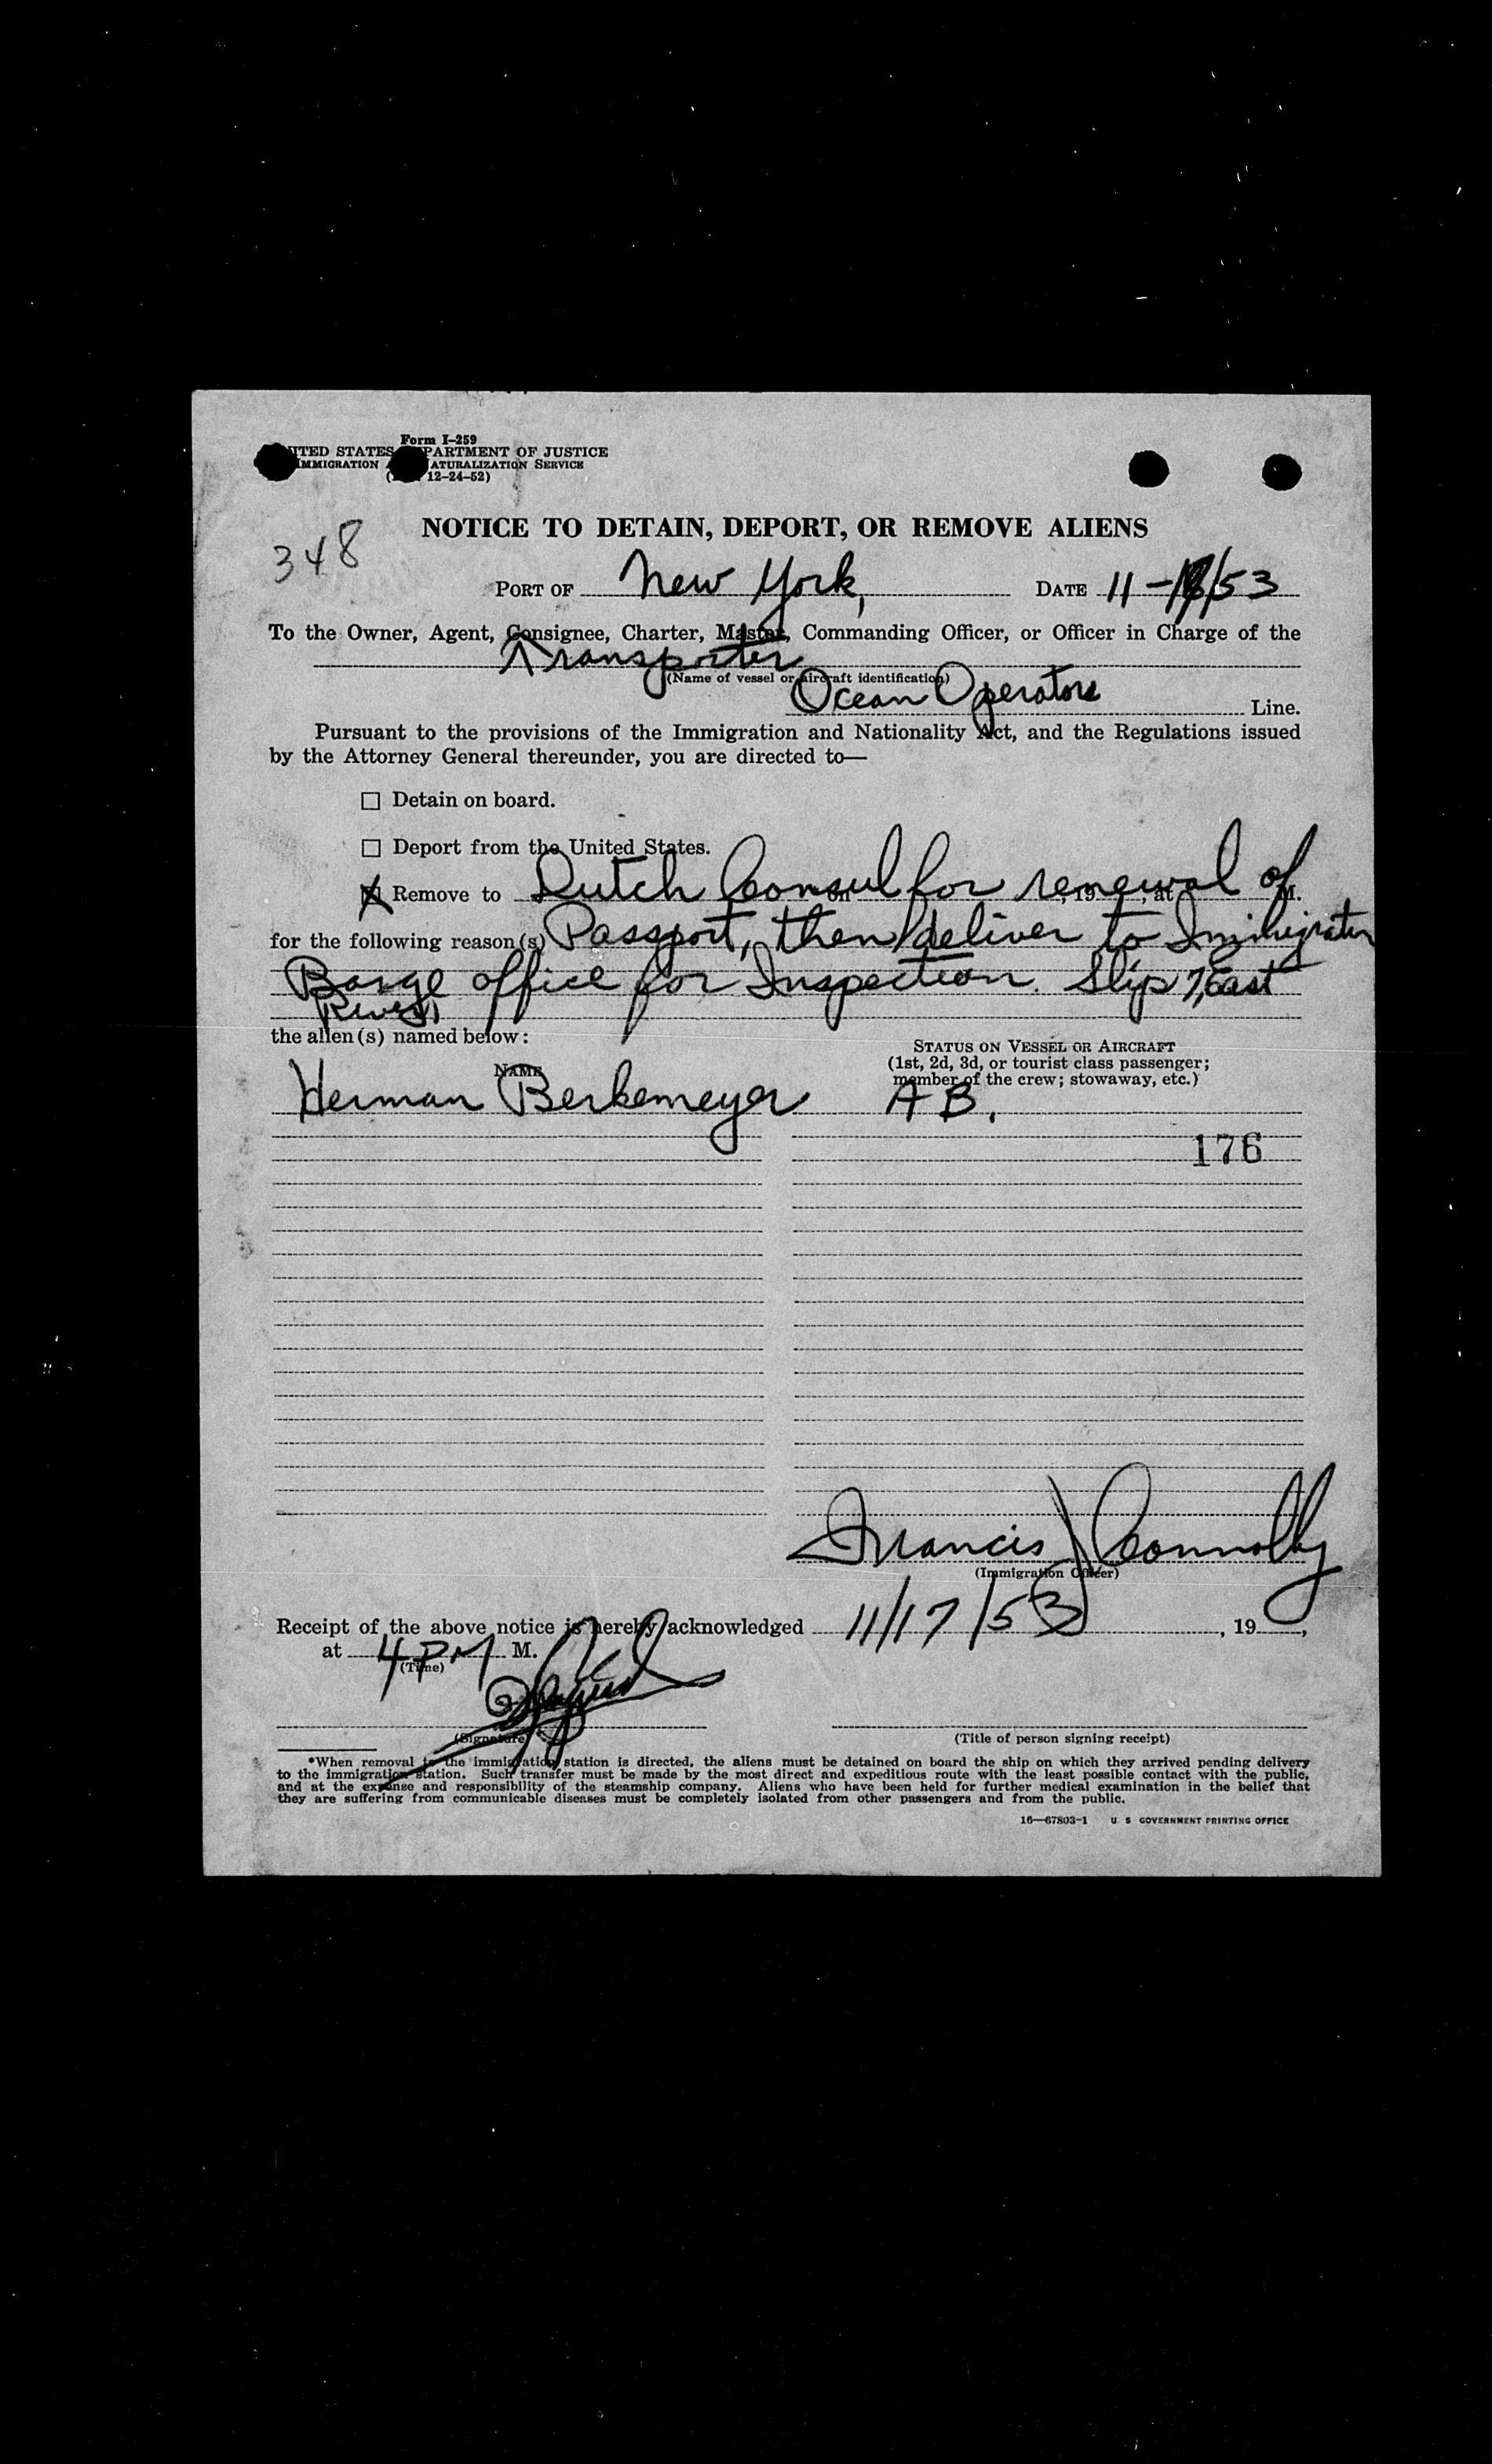 Form I-259
UNITED STATES DEPARTMENT OF JUSTICE
IMMIGRATION AND NATURALIZATION SERVICE
12-24-52)
348
NOTICE TO DETAIN, DEPORT, OR REMOVE ALIENS
PORT OF New York, DATE 11-/53
To the Owner, Agent, Consignee, Charter, Master, Commanding Officer, or Officer in Charge of the
Transporter
(Name of vessel or aircraft identification)
Ocean Operators Line.
Pursuant to the provisions of the Immigration and Nationality Act, and the Regulations issued
by the Attorney General thereunder, you are directed to—
☐ Detain on board.
☐ Deport from the United States.
☒ Remove to Dutch Consul for renewal of on , 19 , at M.
for the following reason(s) Passport, then deliver to Immigration
Barge office for Inspection. Slip 7, East
River
the alien(s) named below:
STATUS ON VESSEL OR AIRCRAFT
(1st, 2d, 3d, or tourist class passenger;
member of the crew; stowaway, etc.)
NAME
Herman Berkemeyer A B.
176
Francis J Connolly
(Immigration Officer)
Receipt of the above notice is hereby acknowledged 11/17/53, 19 ,
at 4 PM M.
(Time)
(Signature)
(Title of person signing receipt)
*When removal to the immigration station is directed, the aliens must be detained on board the ship on which they arrived pending delivery
to the immigration station. Such transfer must be made by the most direct and expeditious route with the least possible contact with the public,
and at the expense and responsibility of the steamship company. Aliens who have been held for further medical examination in the belief that
they are suffering from communicable diseases must be completely isolated from other passengers and from the public.
16—67803-1 U. S. GOVERNMENT PRINTING OFFICE